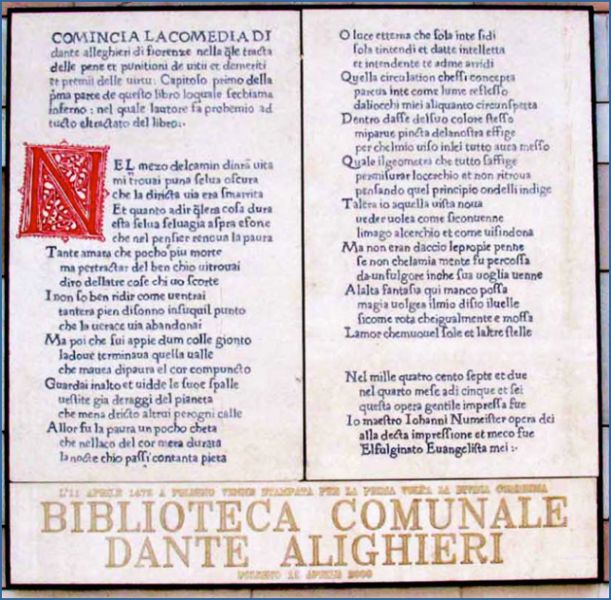 COMINCIA LA COMEDIA DI
dante alleghieri di fiorenze nella q̃le tracta
delle pene et punitioni de uitii et demeriti
et premii delle uirtu: Capitolo primo della
p̃ma parte de questo libro loquale sechiama
inferno: nel quale lautore fa prohemio ad
tucto eltractato del libro:.
NEL mezo delcamin dinr̃a uita
mi trouai puna selua oscura
che la diricta uia era smarrita
Et quanto adir q̃lera cosa dura
esta selua seluagia aspra eforte
che nel pensier renoua la paura
Tante amara che pocho piu morte
ma pertractar del ben chio uitrouai
diro dellaltre cose chi uo scorte
I non so ben ridir come uentrai
tantera pien disonno insuquil punto
che la uerace uia abandonai
Ma poi che fui appie dum colle gionto
ladoue terminaua quella ualle
che mauea dipaura el cor compuncto
Guardai inalto et uidde le suoe spalle
uestite gia deraggi del pianeta
che mena dricto altrui perogni calle
Allor fu la paura un pocho cheta
che nellaco del cor mera durata
la nocte chio passi contanta pieta
O luce etterna che sola inte sidi
sola tintendi et datte intelletta
et intendente te adme arridi
Quella circulation chessi concepta
pareua inte come lume reflesso
dallocchi miei aliquanto circunspetta
Dentro dasse delsuo colore stesso
miparue pincta delanostra effige
per chelmio uiso inlei tutto auea messo
Quale ilgeometra che tutto saffige
permisurar locerchio et non ritroua
pensando quel principio ondelli indige
Taltera io aquella uista noua
ueder uolea come siconuenne
limago alcerchio et come uisindona
Ma non eran daccio lepropie penne
se non chelamia mente fu percossa
daunfulgore inche sua uoglia uenne
Alalta fantasia qui manco possa
magia uolgea ilmio disio iluelle
sicome rota cheigualmente e mossa
Lamor chemuouel sole et laltre stelle
Nel mille quatro cento septe et due
nel quarto mese adi cinque et sei
questa opera gentile impressa fue
Io maestro Iohanni Numeister opera dei
alla decta impressione et meco fue
Elfulginato Euangelista mei:.
L'11 APRILE 1472 A FOLIGNO VENNE STAMPATA PER LA PRIMA VOLTA LA DIVINA COMMEDIA
BIBLIOTECA COMUNALE
DANTE ALIGHIERI
FOLIGNO APRILE